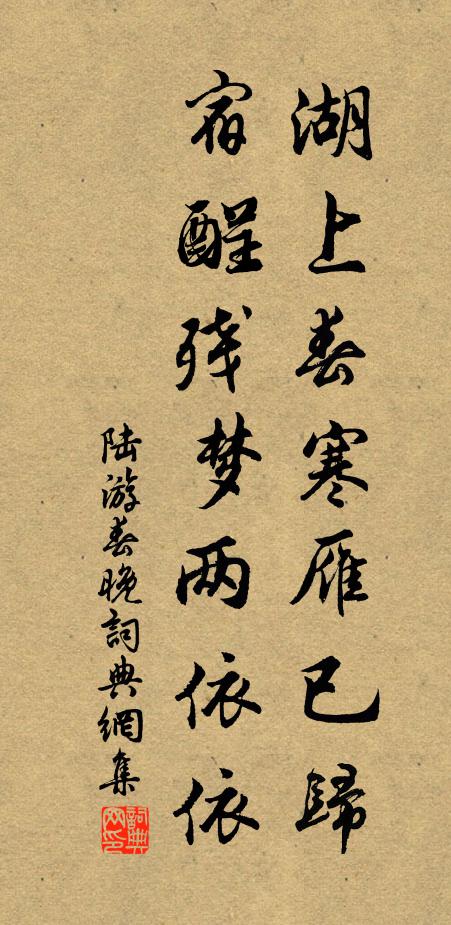 湖上春寒雁已歸
宿酲残梦两依依
陆游春晚詞典網集
詞典网印